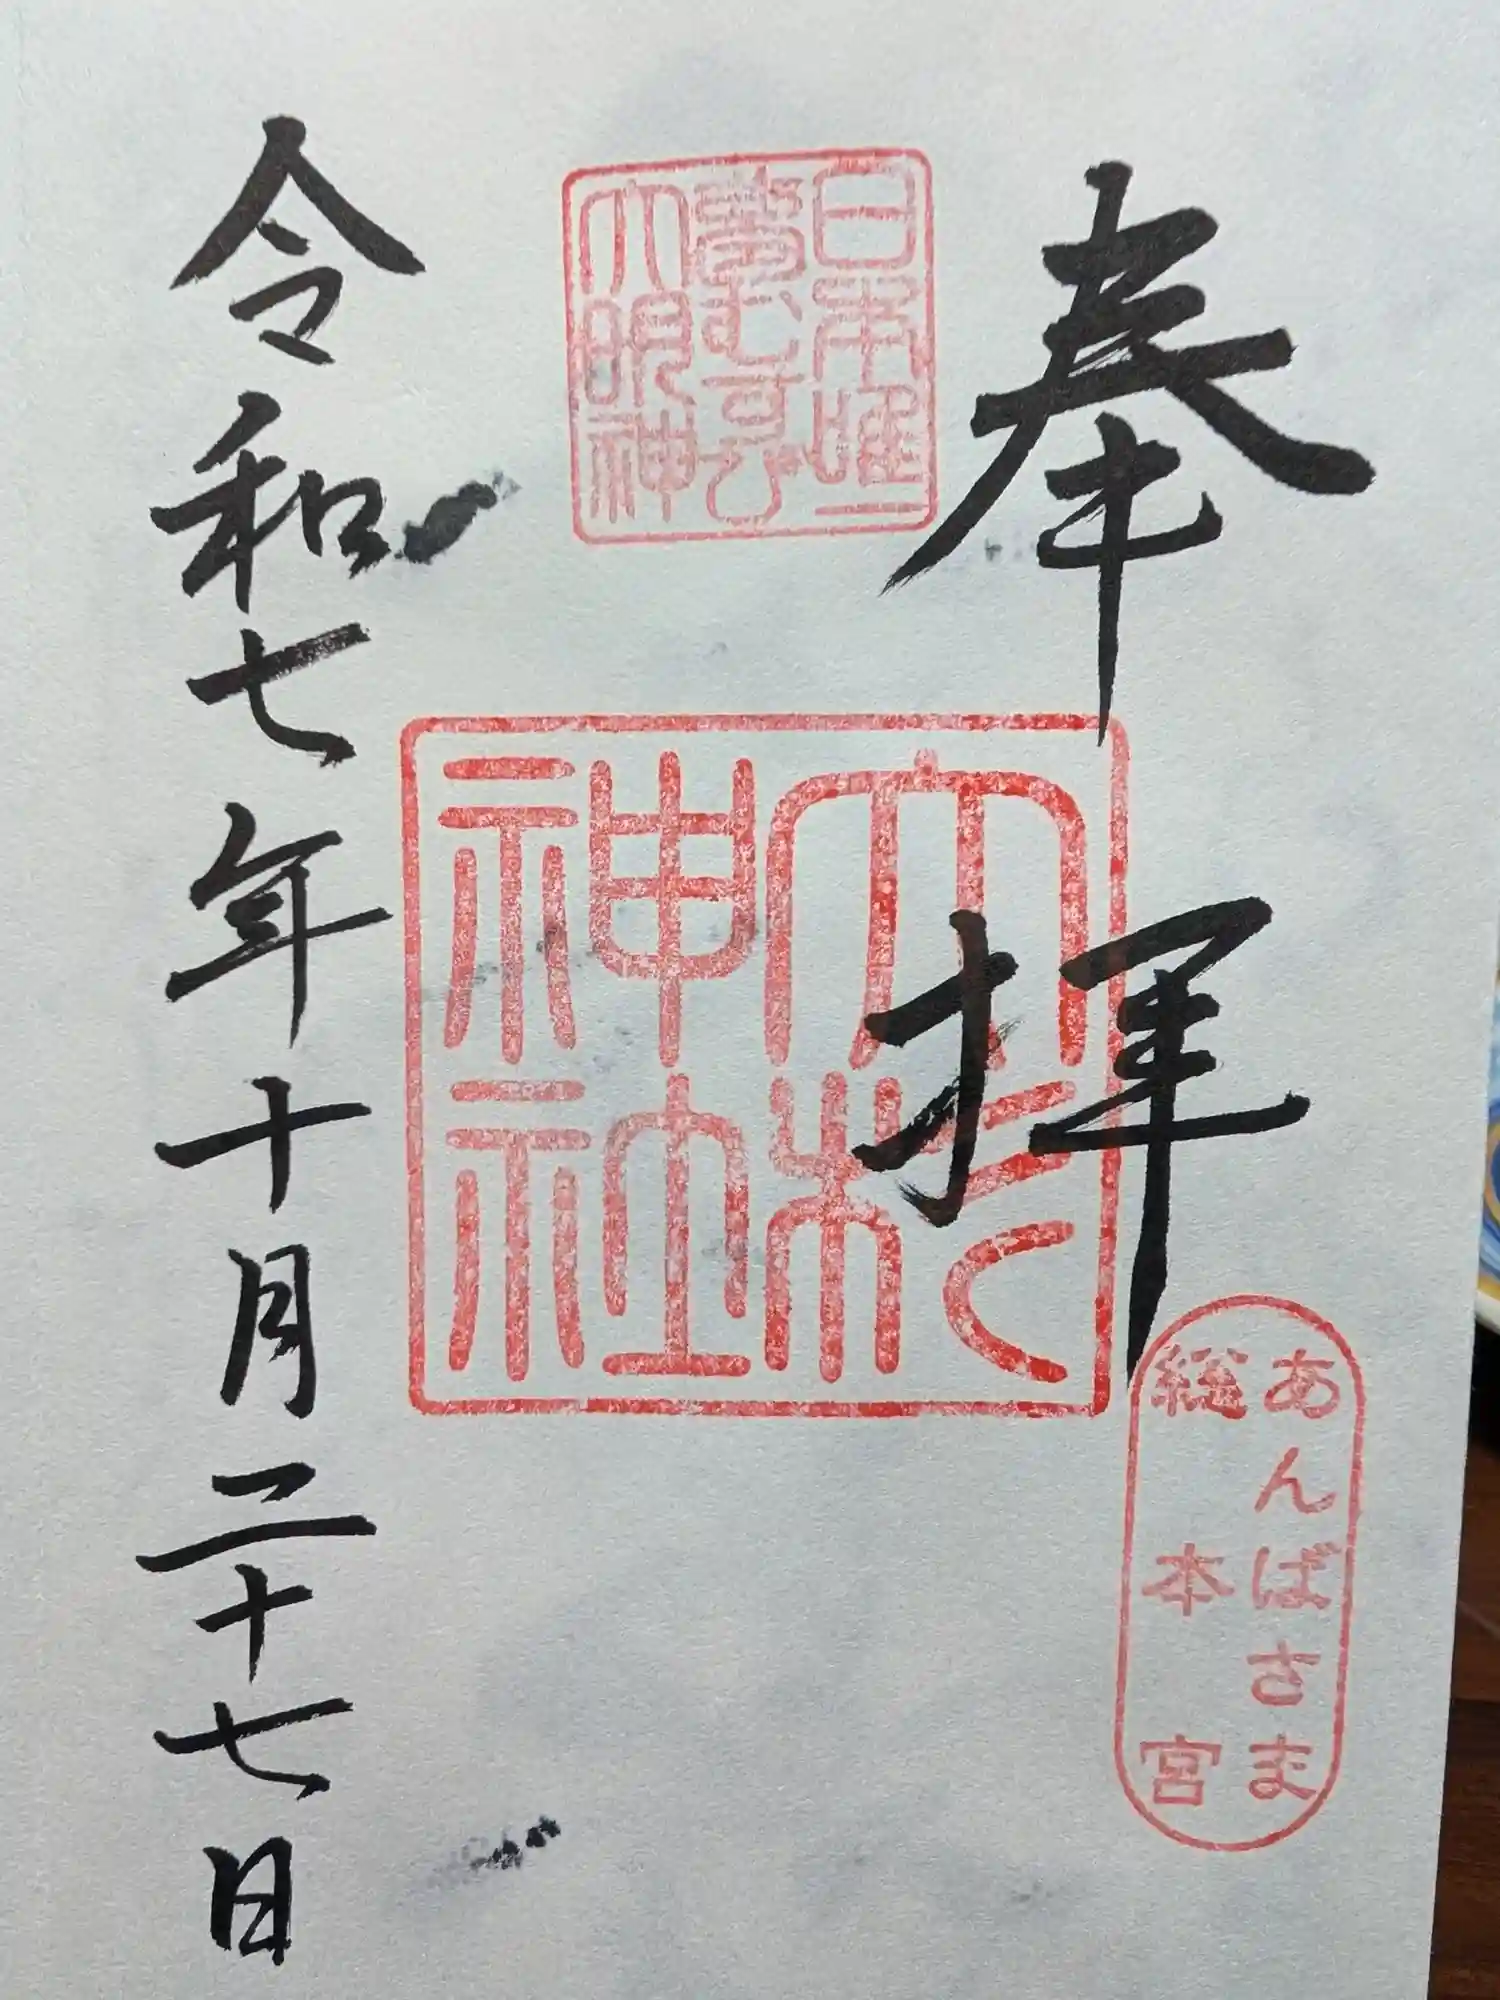 奉拝
日本唯一
夢むすび
大明神
大杉
神社
あんばさま
総本宮
令和七年十月二十七日